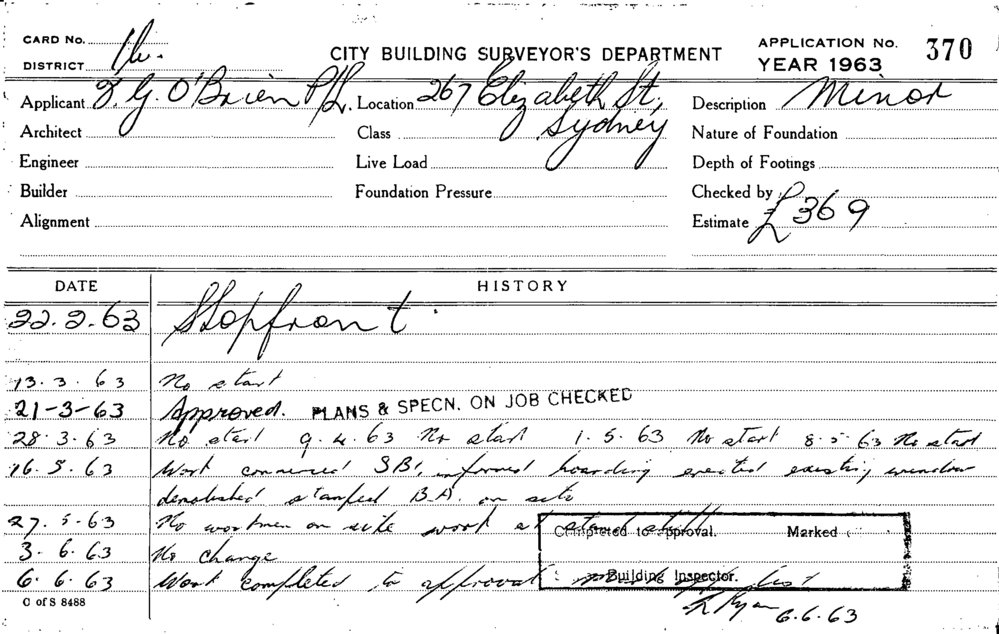 CARD No.
DISTRICT
CITY BUILDING SURVEYOR'S DEPARTMENT
APPLICATION No. 370
YEAR 1963
Applicant F. G. O'Brien P/L. Location 267 Elizabeth St, Description Minor
Sydney
Architect Class Nature of Foundation
Engineer Live Load Depth of Footings
Builder Foundation Pressure Checked by
Alignment Estimate £369
DATE HISTORY
22.2.63 Shopfront
13.3.63 No start
21-3-63 Approved. PLANS & SPECN. ON JOB CHECKED
28.3.63 No start 9.4.63 No start 1.5.63 No start 8.5.63 No start
16.5.63 Work commenced SBI, informed hoarding erected existing window
demolished stamped B.A. on site
27.5.63 No workmen on site work at stand still
Completed to approval. Marked
3.6.63 No change
6.6.63 Work completed to approval list
Building Inspector.
C of S 8488
Ryan 6.6.63